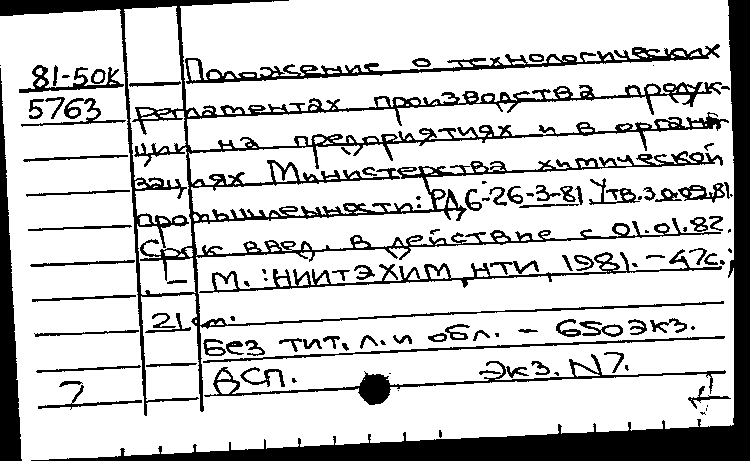 81-50К Положение о технологических
5763 регламентах производства продук-
ции на предприятиях и в органи-
зациях Министерства химической
промышленности: РД 6-26-3-81. Утв. 30.09.81.
Срок введ. в действие с 01.01.82.
. - М.: НИИТЭХИМ, НТИ, 1981. - 47с.;
21 см.
Без тит. л. и обл. - 650экз.
ДСП. Экз. N7.
7